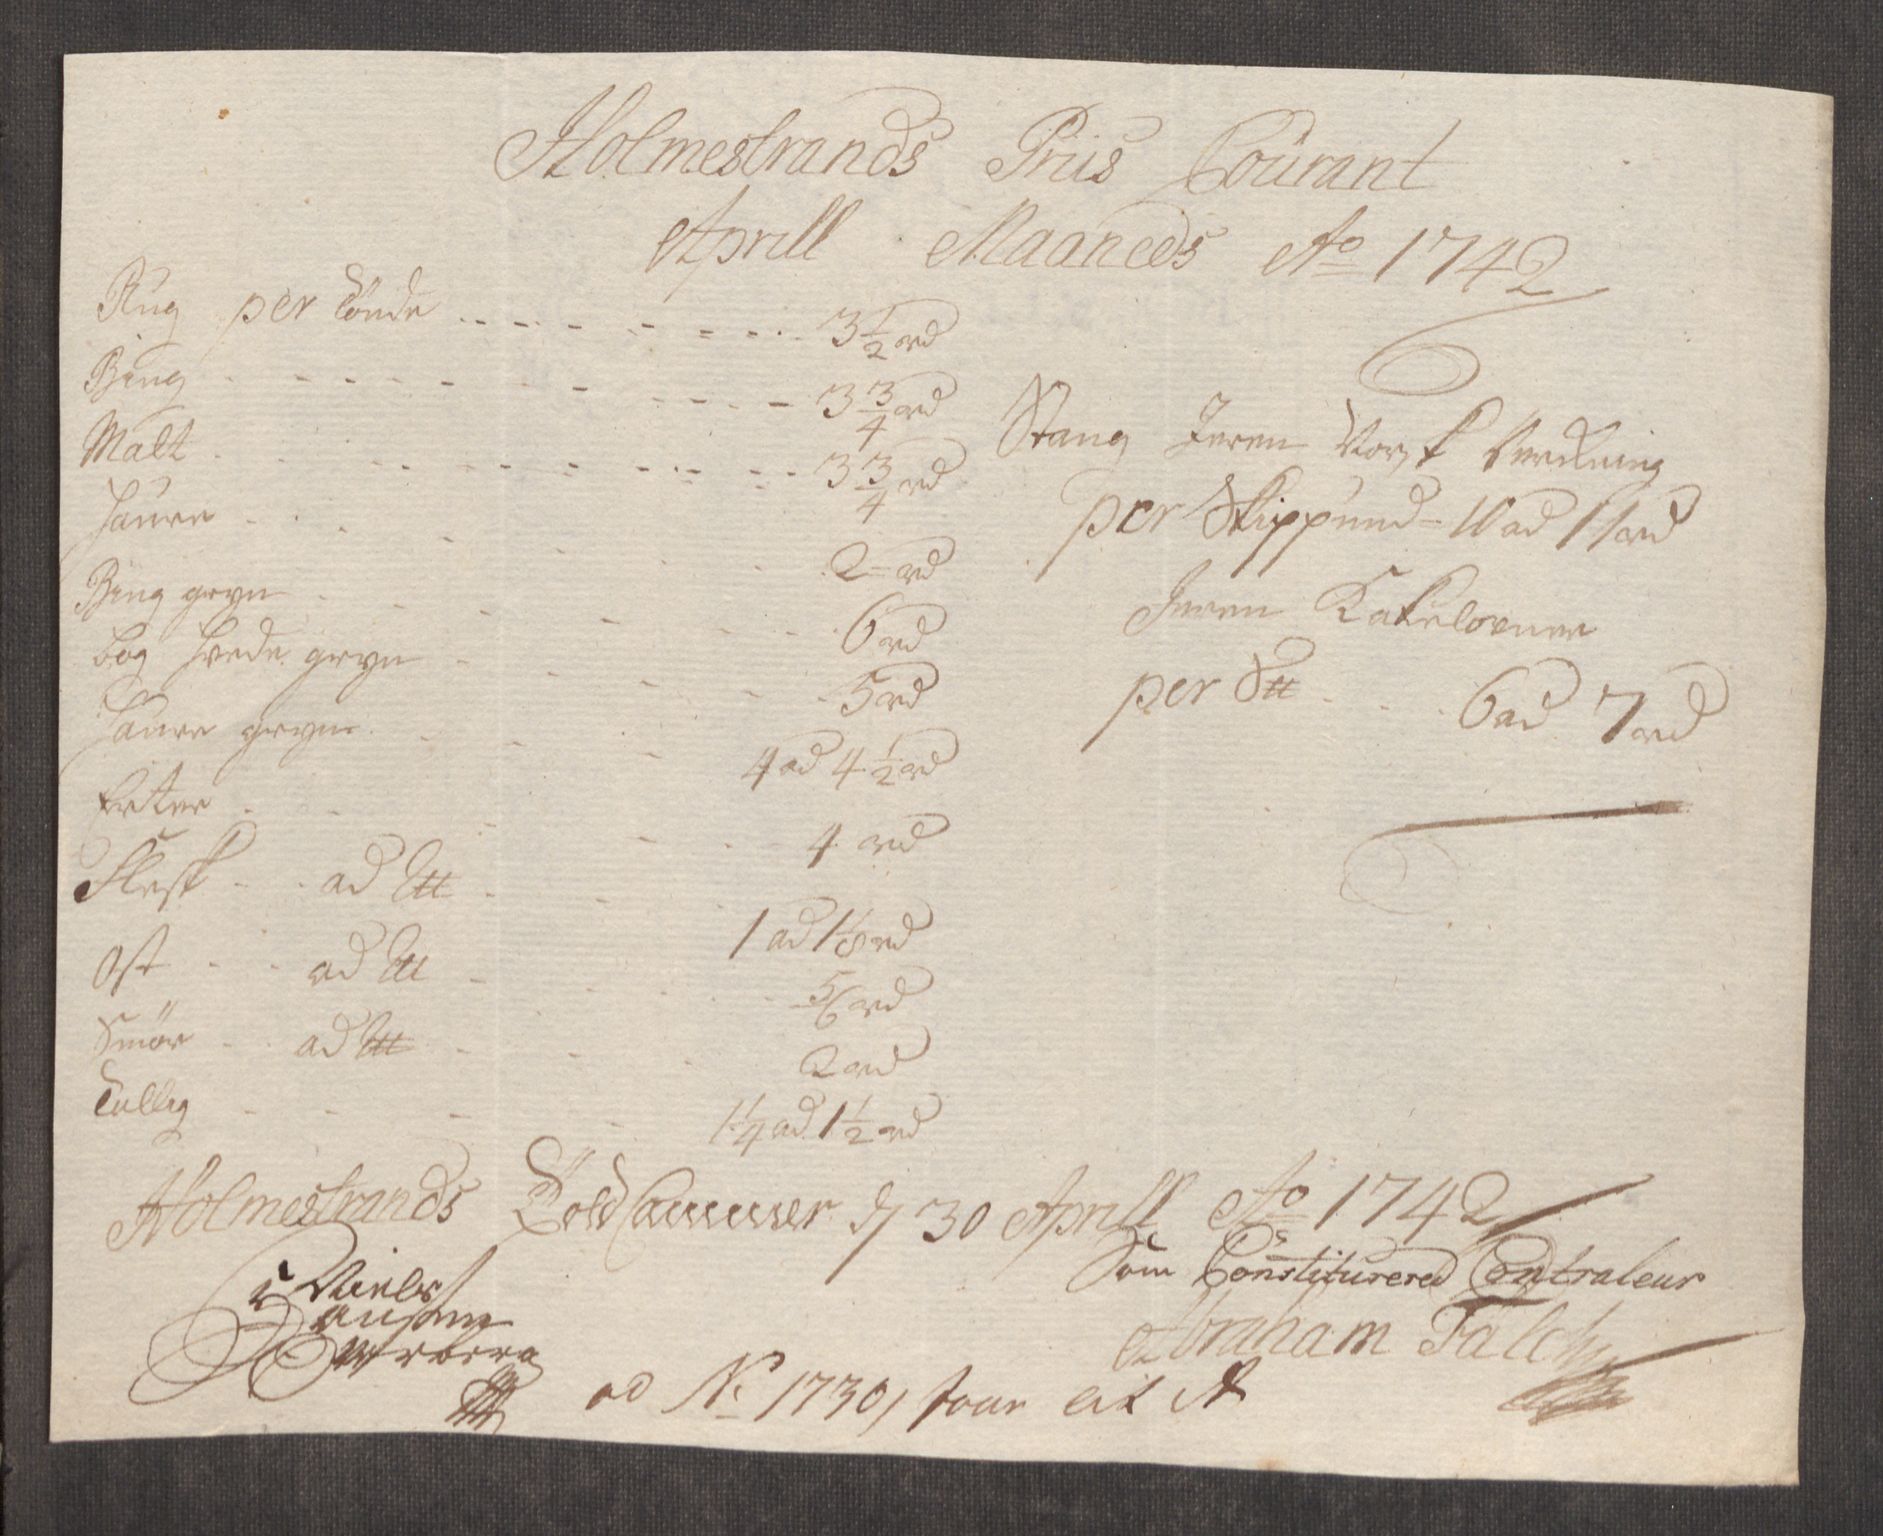 Holmestrands Priis Courant
Aprill Maaneds Ao 1742
Rug per tönde 3 1/2 rd
Biug 3 3/4 rd
Malt 3 3/4 rd
Haure 2 rd
Biug gryn 6 rd
bog hvede gryn 5 rd
Haure gryn 4 ad 4 1/2 rd
Erter 4 rd
Flesk ad 1 ad 1 1/8 rd
Ost ad 5/6 rd
Smör ad 2 rd
Tallig 1 1/4 ad 1 1/2 rd
Stang Jeren Norsk
per Skippund 10 ad 11 rd
Jeren Kakelovner
per 6 ad 7 rd
Holmestrands Told Cammer d 30 Aprill Ao 1742
Som Constitutered Contraleur
Abraham Falch
Niels
ad No 1730